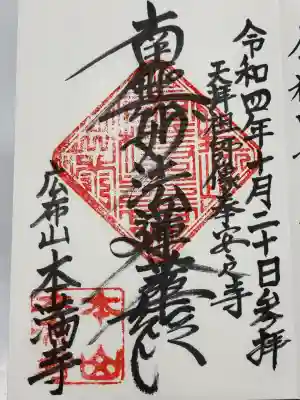 令和四年十月二十日参拝
天拝祖師像奉安之寺
南無妙法蓮華経
広布山本満寺